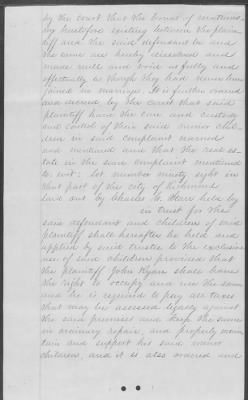 by the court that the bonds of matrimony
heretofore existing between the plain-
tiff and the said defendant be and
the same are hereby dissolved and
made null and void as fully and
effectually as though they had never been
joined in marriage. It is further ordered
and decreed by the court that said
plaintiff have the care and custody
and control of their said minor chil-
dren in said complaint named
and mentioned and that the real es-
tate in the same complaint mentioned
to wit: Lot number ninety eight in
that part of the city of Richmond
laid out by Charles W. Starr held by
in trust for the
said defendant and children of said
plaintiff shall hereafter be held and
applied by said trustee to the exclusive
use of said children provided that
the plaintiff John Ryan shall have
the right to occupy and use the same
and he is required to pay all taxes
that may be assessed legally against
the said premises and keep the same
in ordinary repair, and properly main
tain and support his said minor
children, and it is also ordered and